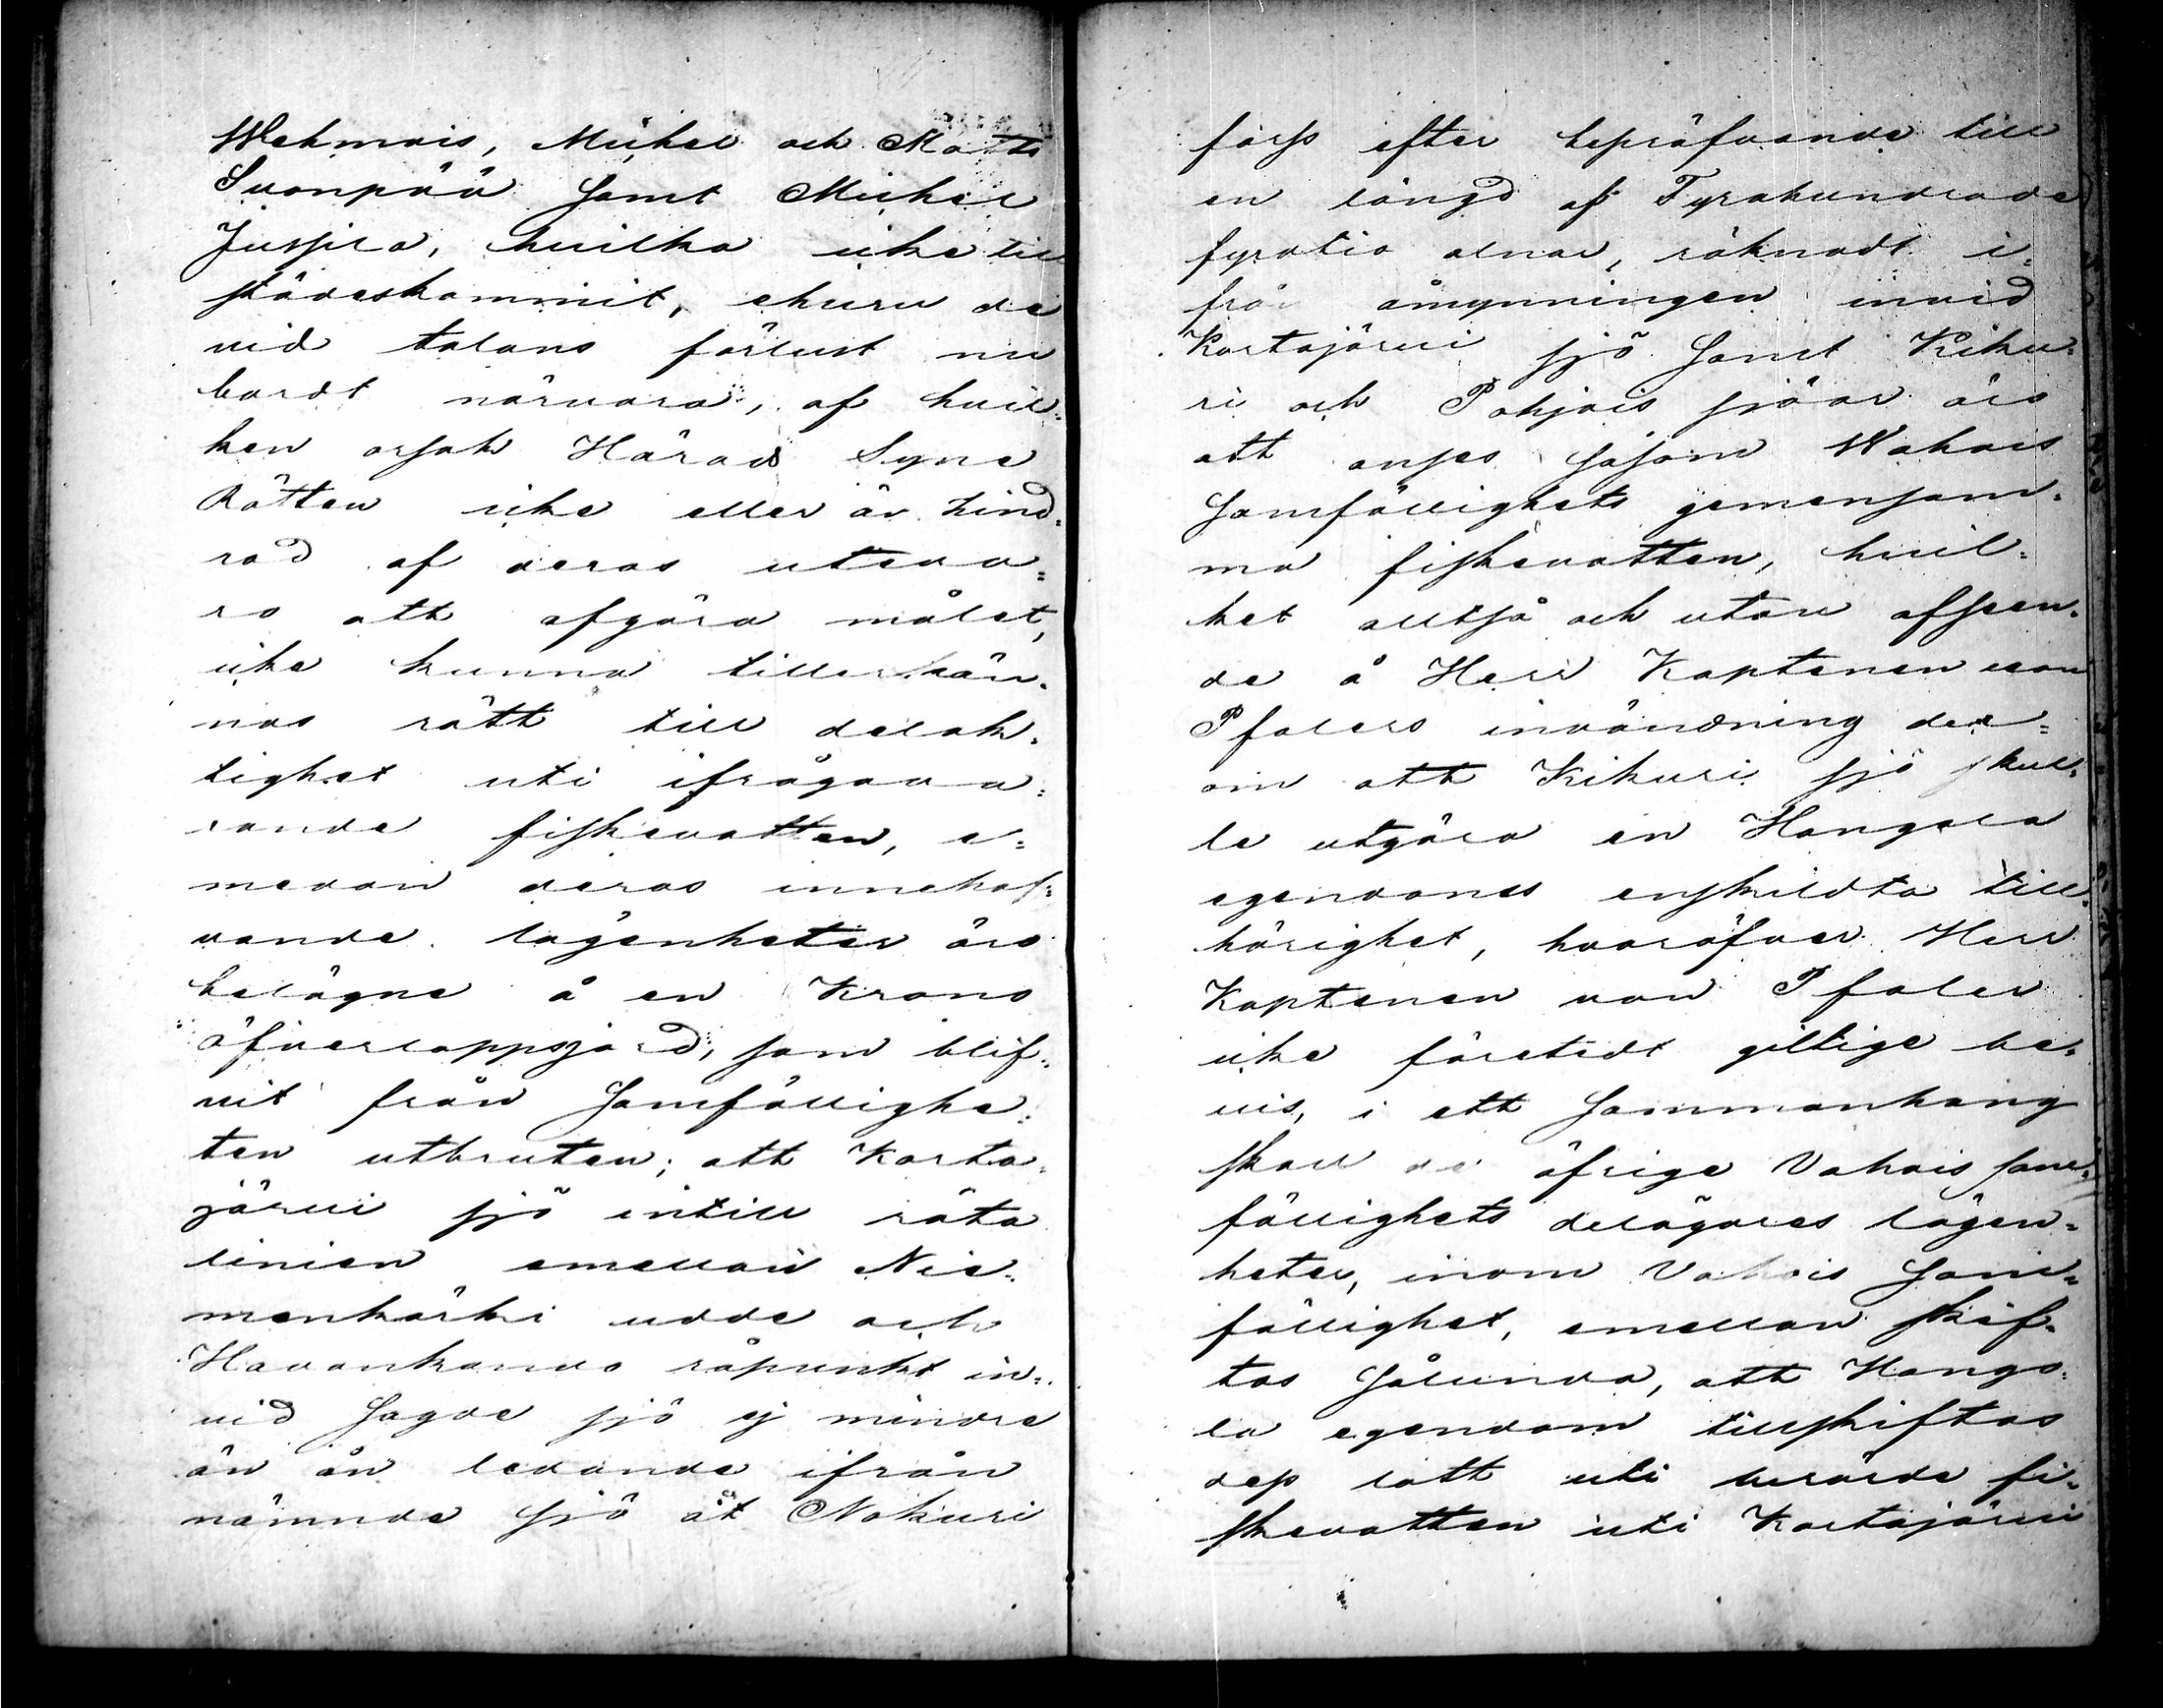 Wehmais, Michel och Matts
Suonpää samt Michel
Jussila, hvilka icke till
städeskommit, ehuru de
vid talans förlust nu
bordt närvara, af hvil=
ken orsak Härads Syne
Rätten icke eller är hind=
rad af deras uteva=
ro att afgöra målet,
icke kunna tillerkän=
nas rätt till delak=
tighet uti ifrågava=
rande fiskevatten, e=
medan deras innehaf=
vande lägenheter äro
belägne å en Krono
öfverloppsjord, som blif=
vit från Samfällighe=
ten utbruten; att Korta=
järvi sjö intill räta
linien emellan Nie=
menkärki udde och
Havankanvo råpunkt in=
vid sagde sjö ej mindre
än ån ledande ifrån
nämnde sjö åt Nokuri
forss efter beprøfvande till
en längd af Fyrahundrade
fyratio alnar, räknadt i=
från åmynningen invid
Kortajärvi sjö samt Kiku=
ri och Pohjois sjöar äro
att anses såsom Wahois
Samfällighets gemensam=
ma fiskevatten, hvil=
ket alltså och utan afseen=
de å Herr Kaptenen von
Pfalers invändning der=
om att Kikuri sjö skul=
le utgöra en Hongola
egendomes enskildta till=
hörighet, hvaröfver Herr
Kaptenen von Pfaler
icke företedt giltige be=
vis, i ett sammanhang
skall de öfrige Vahois sam=
fällighets delägares lägen=
heter, inom Vahois Sam=
fällighet, emellan skif=
tas sålunda, att Hongo=
la egendom tillskiftas
dess lott uti berörde fi=
skevatten uti Kortajärvi